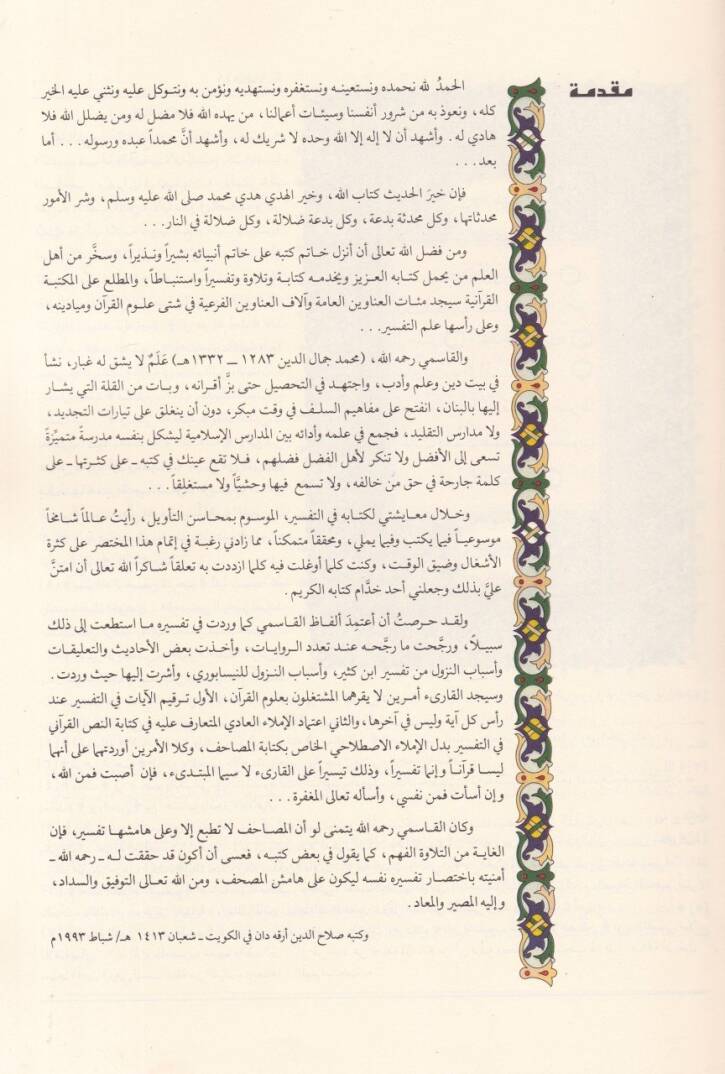 مقدمة
الحمدُ لله نحمده ونستعينه ونستغفره ونستهديه ونؤمن به ونتوكل عليه ونثني عليه الخير
كله، ونعوذ به من شرور أنفسنا وسيئات أعمالنا، من يهده الله فلا مضل له ومن يضلل الله فلا
هادي له. وأشهد أن لا إله إلا الله وحده لا شريك له، وأشهد أنَّ محمداً عبده ورسوله... أما
بعد...
فإن خيرَ الحديث كتاب الله، وخير الهدي هدي محمد صلى الله عليه وسلم، وشر الأمور
محدثاتها، وكل محدثة بدعة، وكل بدعة ضلالة، وكل ضلالة في النار...
ومن فضل الله تعالى أن أنزل خاتم كتبه على خاتم أنبيائه بشيراً ونذيراً، وسخَّر من أهل
العلم من يحمل كتابه العزيز ويخدمه كتابة وتلاوة وتفسيراً واستنباطاً، والمطلع على المكتبة
القرآنية سيجد مئات العناوين العامة وآلاف العناوين الفرعية في شتى علوم القرآن وميادينه،
وعلى رأسها علم التفسير...
والقاسمي رحمه الله، (محمد جمال الدين ١٢٨٣ ــ ١٣٣٢هـ) عَلَمٌ لا يشق له غبار، نشأ
في بيت دين وعلم وأدب، واجتهد في التحصيل حتى بزَّ أقرانه، وبات من القلة التي يشار
إليها بالبنان، انفتح على مفاهيم السلف في وقت مبكر، دون أن ينغلق على تيارات التجديد،
ولا مدارس التقليد، فجمع في علمه وأدائه بين المدارس الإسلامية ليشكل بنفسه مدرسةً متميِّزةً
تسعى إلى الأفضل ولا تنكر لأهل الفضل فضلهم، فلا تقع عينك في كتبه ـ على كثرتها ـ على
كلمة جارحة في حق من خالفه، ولا تسمع فيها وحشيّاً ولا مستغلِقاً...
وخلال معايشتي لكتابه في التفسير، الموسوم بمحاسن التأويل، رأيتُ عالماً شامخاً
موسوعياً فيما يكتب وفيما يملي، ومحققاً متمكناً، مما زادني رغبة في إتمام هذا المختصر على كثرة
الأشغال وضيق الوقت، وكنت كلما أوغلت فيه كلما ازددت به تعلقاً شاكراً الله تعالى أن امتنَّ
عليَّ بذلك وجعلني أحد خدَّام كتابه الكريم.
ولقد حرصتُ أن أعتمِدَ ألفاظ القاسمي كما وردت في تفسيره ما استطعت إلى ذلك
سبيلاً، ورجَّحت ما رجَّحه عند تعدد الروايات، وأخذت بعض الأحاديث والتعليقات
وأسباب النزول من تفسير ابن كثير، وأسباب النزول للنيسابوري، وأشرت إليها حيث وردت.
وسيجد القارىء أمرين لا يقرهما المشتغلون بعلوم القرآن، الأول ترقيم الآيات في التفسير عند
رأس كل آية وليس في آخرها، والثاني اعتماد الإملاء العادي المتعارف عليه في كتابة النص القرآني
في التفسير بدل الإملاء الاصطلاحي الخاص بكتابة المصاحف، وكلا الأمرين أوردتهما على أنهما
ليسا قرآناً وإنما تفسيراً، وذلك تيسيراً على القارىء لا سيما المبتدىء، فإن أصبت فمن الله،
وإن أسأت فمن نفسي، وأسأله تعالى المغفرة...
وكان القاسمي رحمه الله يتمنى لو أن المصاحف لا تطبع إلا وعلى هامشها تفسير، فإن
الغاية من التلاوة الفهم، كما يقول في بعض كتبه، فعسى أن أكون قد حققت له ـ رحمه الله ـ
أمنيته باختصار تفسيره نفسه ليكون على هامش المصحف، ومن الله تعالى التوفيق والسداد،
وإليه المصير والمعاد.
وكتبه صلاح الدين أرقه دان في الكويت ـ شعبان ١٤١٣ هـ/ شباط ١٩٩٣م